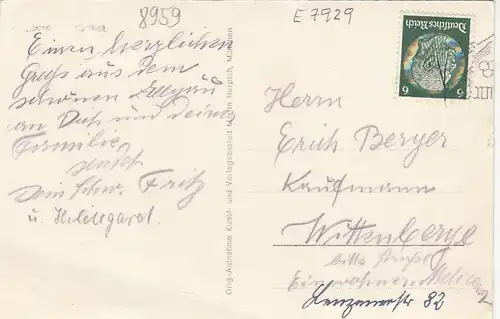 8959
E 7929
Einen herzlichen
Gruß aus dem
schönen Allgäu
an Dich und deine
Familie
sendet
Dein Schw. Fritz
u. Hildegard.
Orig.-Aufnahme Kunst- und Verlagsanstalt München
Deutsches Reich
6 6
Herrn
Erich Berger
Kaufmann
Wittenberge
bitte
Lenzenerstr 82